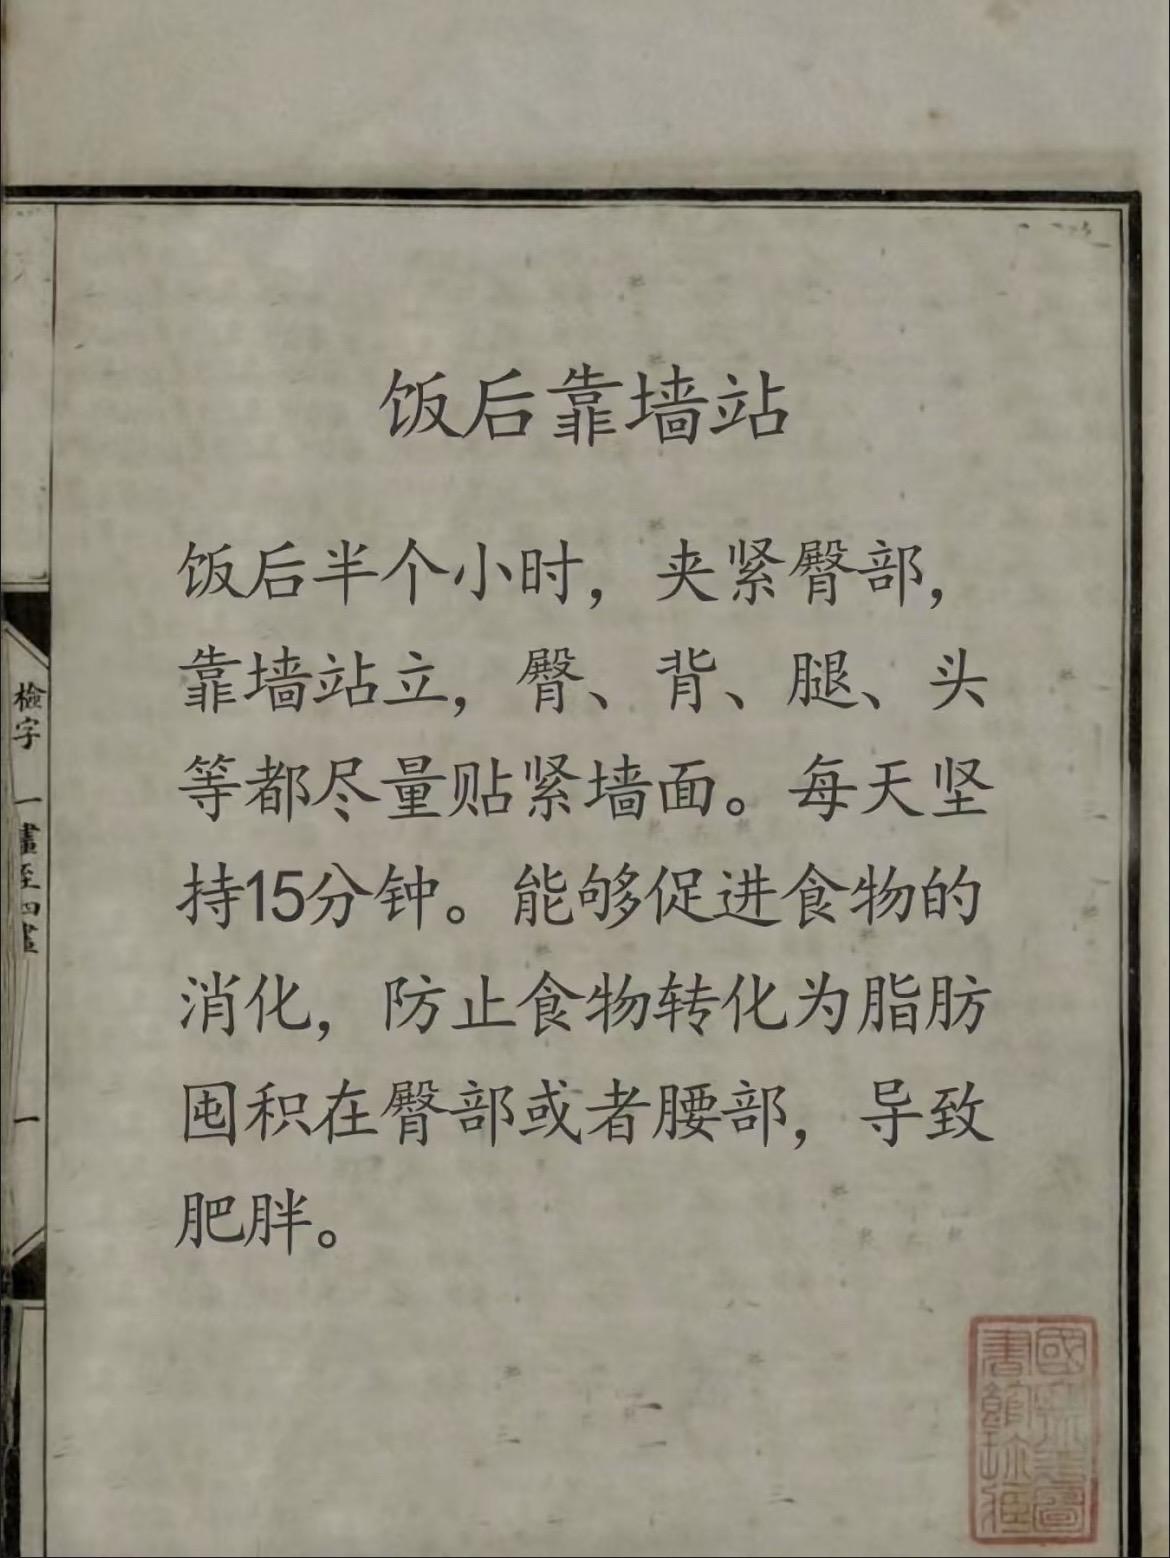 饭后靠墙站
饭后半个小时，夹紧臀部，
靠墙站立，臀、背、腿、头
等都尽量贴紧墙面。每天坚
持15分钟。能够促进食物的
消化，防止食物转化为脂肪
囤积在臀部或者腰部，导致
肥胖。
檢字 一畫至四畫
一